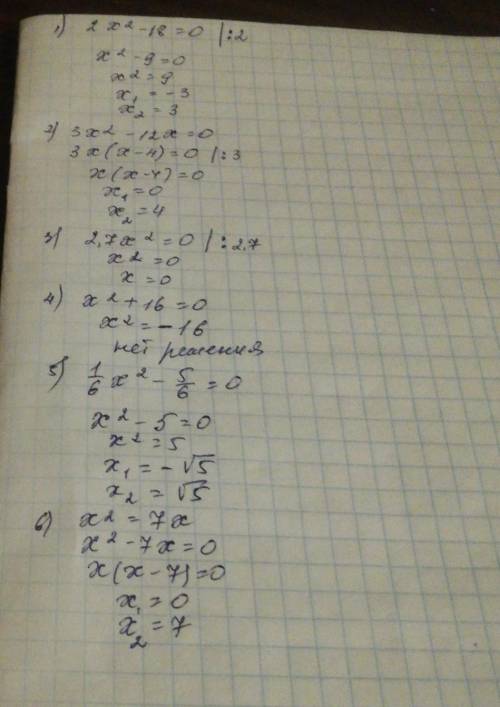 1) 2x² - 18 = 0 | :2
x² - 9 = 0
x² = 9
x₁ = -3
x₂ = 3
2) 3x² - 12x = 0
3x(x - 4) = 0 | :3
x(x - 4) = 0
x₁ = 0
x₂ = 4
3) 2,7x² = 0 | : 2,7
x² = 0
x = 0
4) x² + 16 = 0
x² = -16
нет решения
5) 1/6 x² - 5/6 = 0
x² - 5 = 0
x² = 5
x₁ = -√5
x₂ = √5
6) x² = 7x
x² - 7x = 0
x(x - 7) = 0
x₁ = 0
x₂ = 7